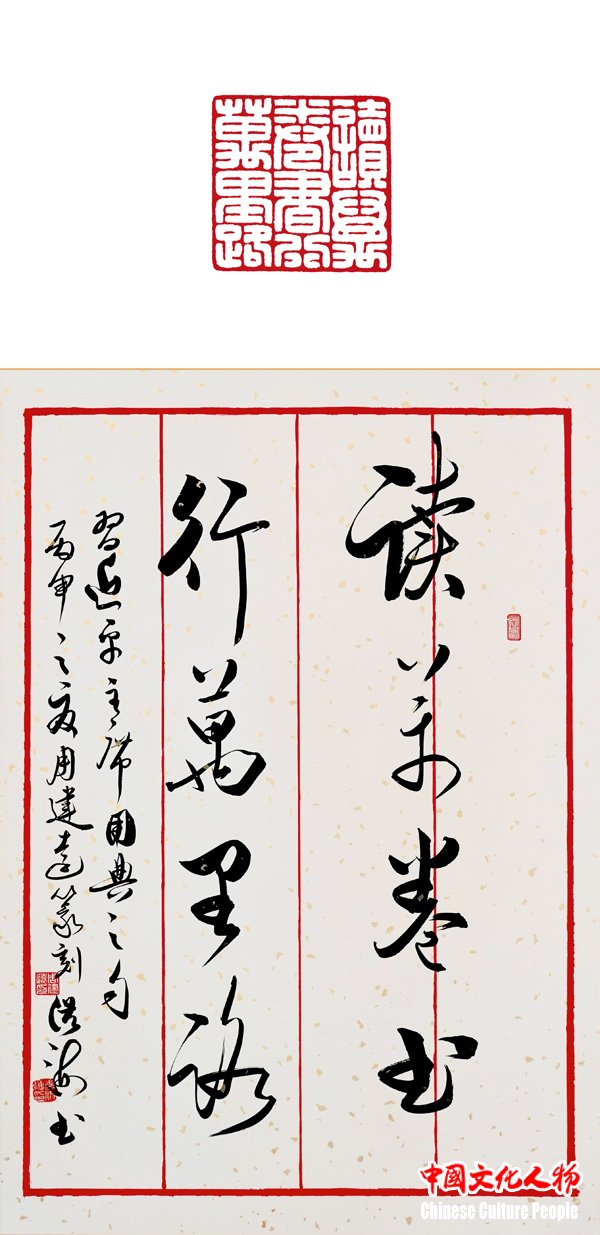 讀萬
卷書行
萬里路
读萬卷书
行萬里路
習近平主席用典之句
丙申之夏周建远篆刻 洪海书
中國文化人物
Chinese Culture People